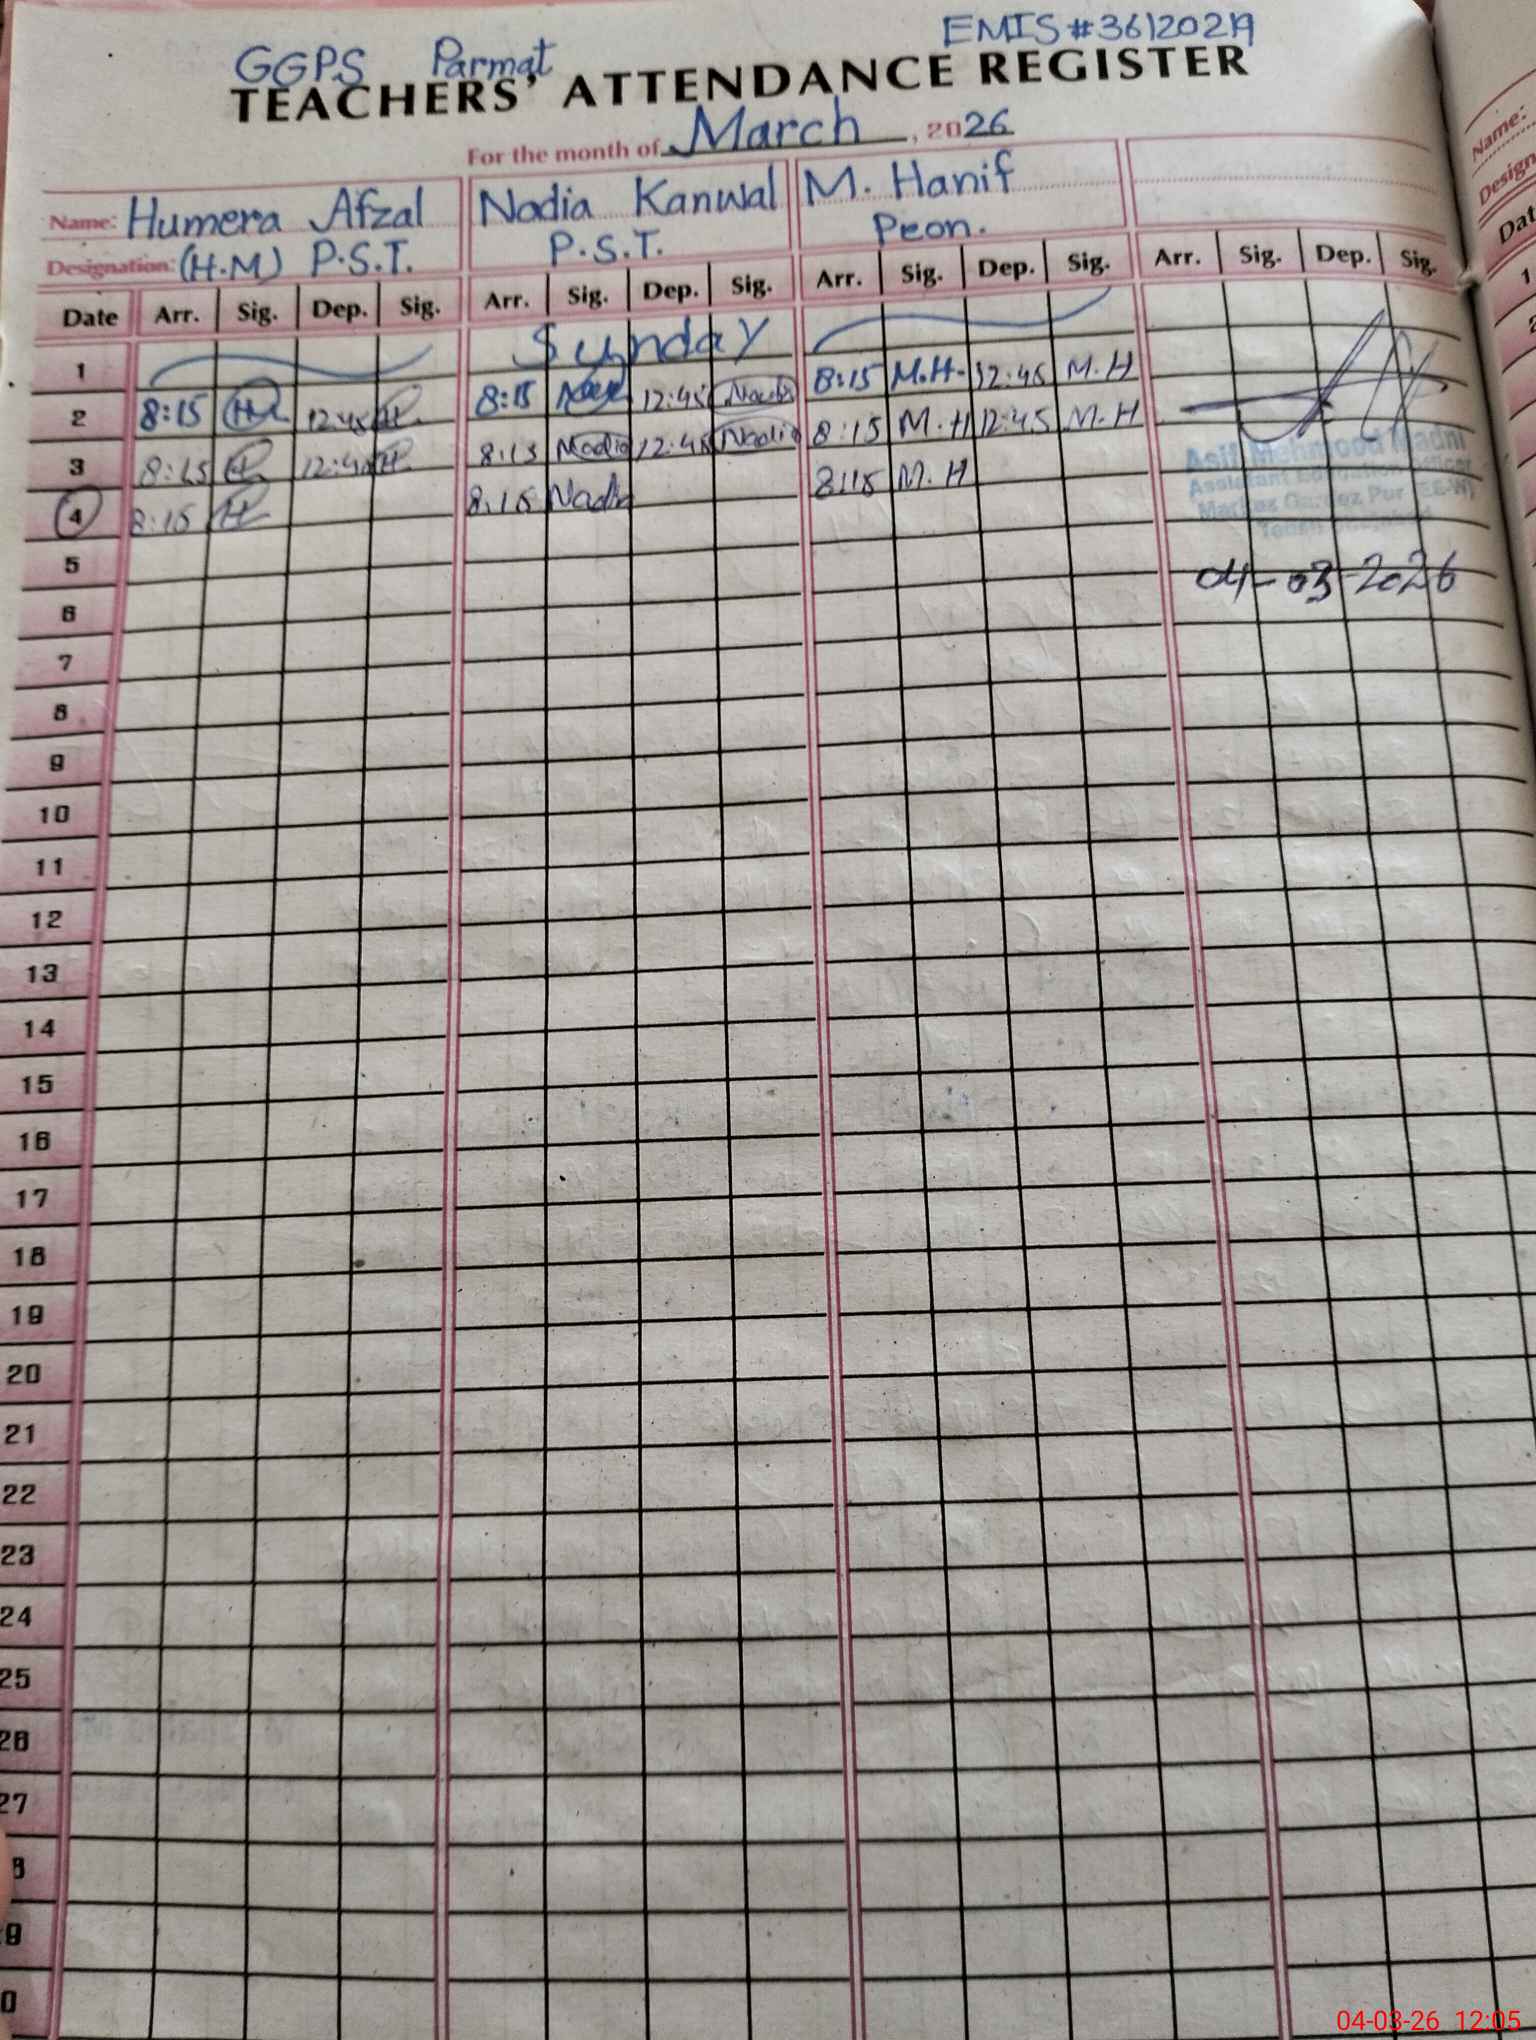 GGPS Parmat EMIS #36120219
TEACHERS' ATTENDANCE REGISTER
For the month of March, 2026
Name: Humera Afzal Nadia Kanwal M. Hanif
Designation: (H.M) P.S.T. P.S.T. Peon.
Date Arr. Sig. Dep. Sig. Arr. Sig. Dep. Sig. Arr. Sig. Dep. Sig. Arr. Sig. Dep. Sig.
1 Sunday
2 8:15 H 12:45 H 8:15 Nadia 12:45 Nadia 8:15 M.H. 12:45 M.H
3 8:15 H 12:45 H 8:15 Nadia 12:45 Nadia 8:15 M.H 12:45 M.H
4 8:15 H 8:15 Nadia 8:15 M.H
Asif Mehmood Madni
Assistant Education Officer
Markaz Pur (EE-W)
5 04-03-2026
6
7
8
9
10
11
12
13
14
15
16
17
18
19
20
21
22
23
24
25
26
27
8
9
0
Name:
Design
Dat
1
2
04-03-26 12:05